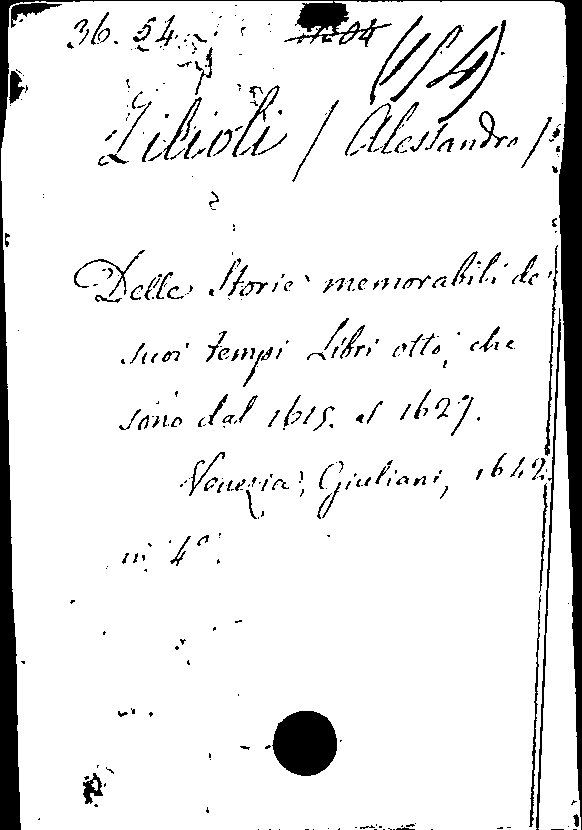 36. 54.
Zilioli / Alessandro /
Delle Storie memorabili de'
suoi tempi Libri otto, che
sono dal 1615. al 1627.
Venezia, Giuliani, 1642.
in 4º.